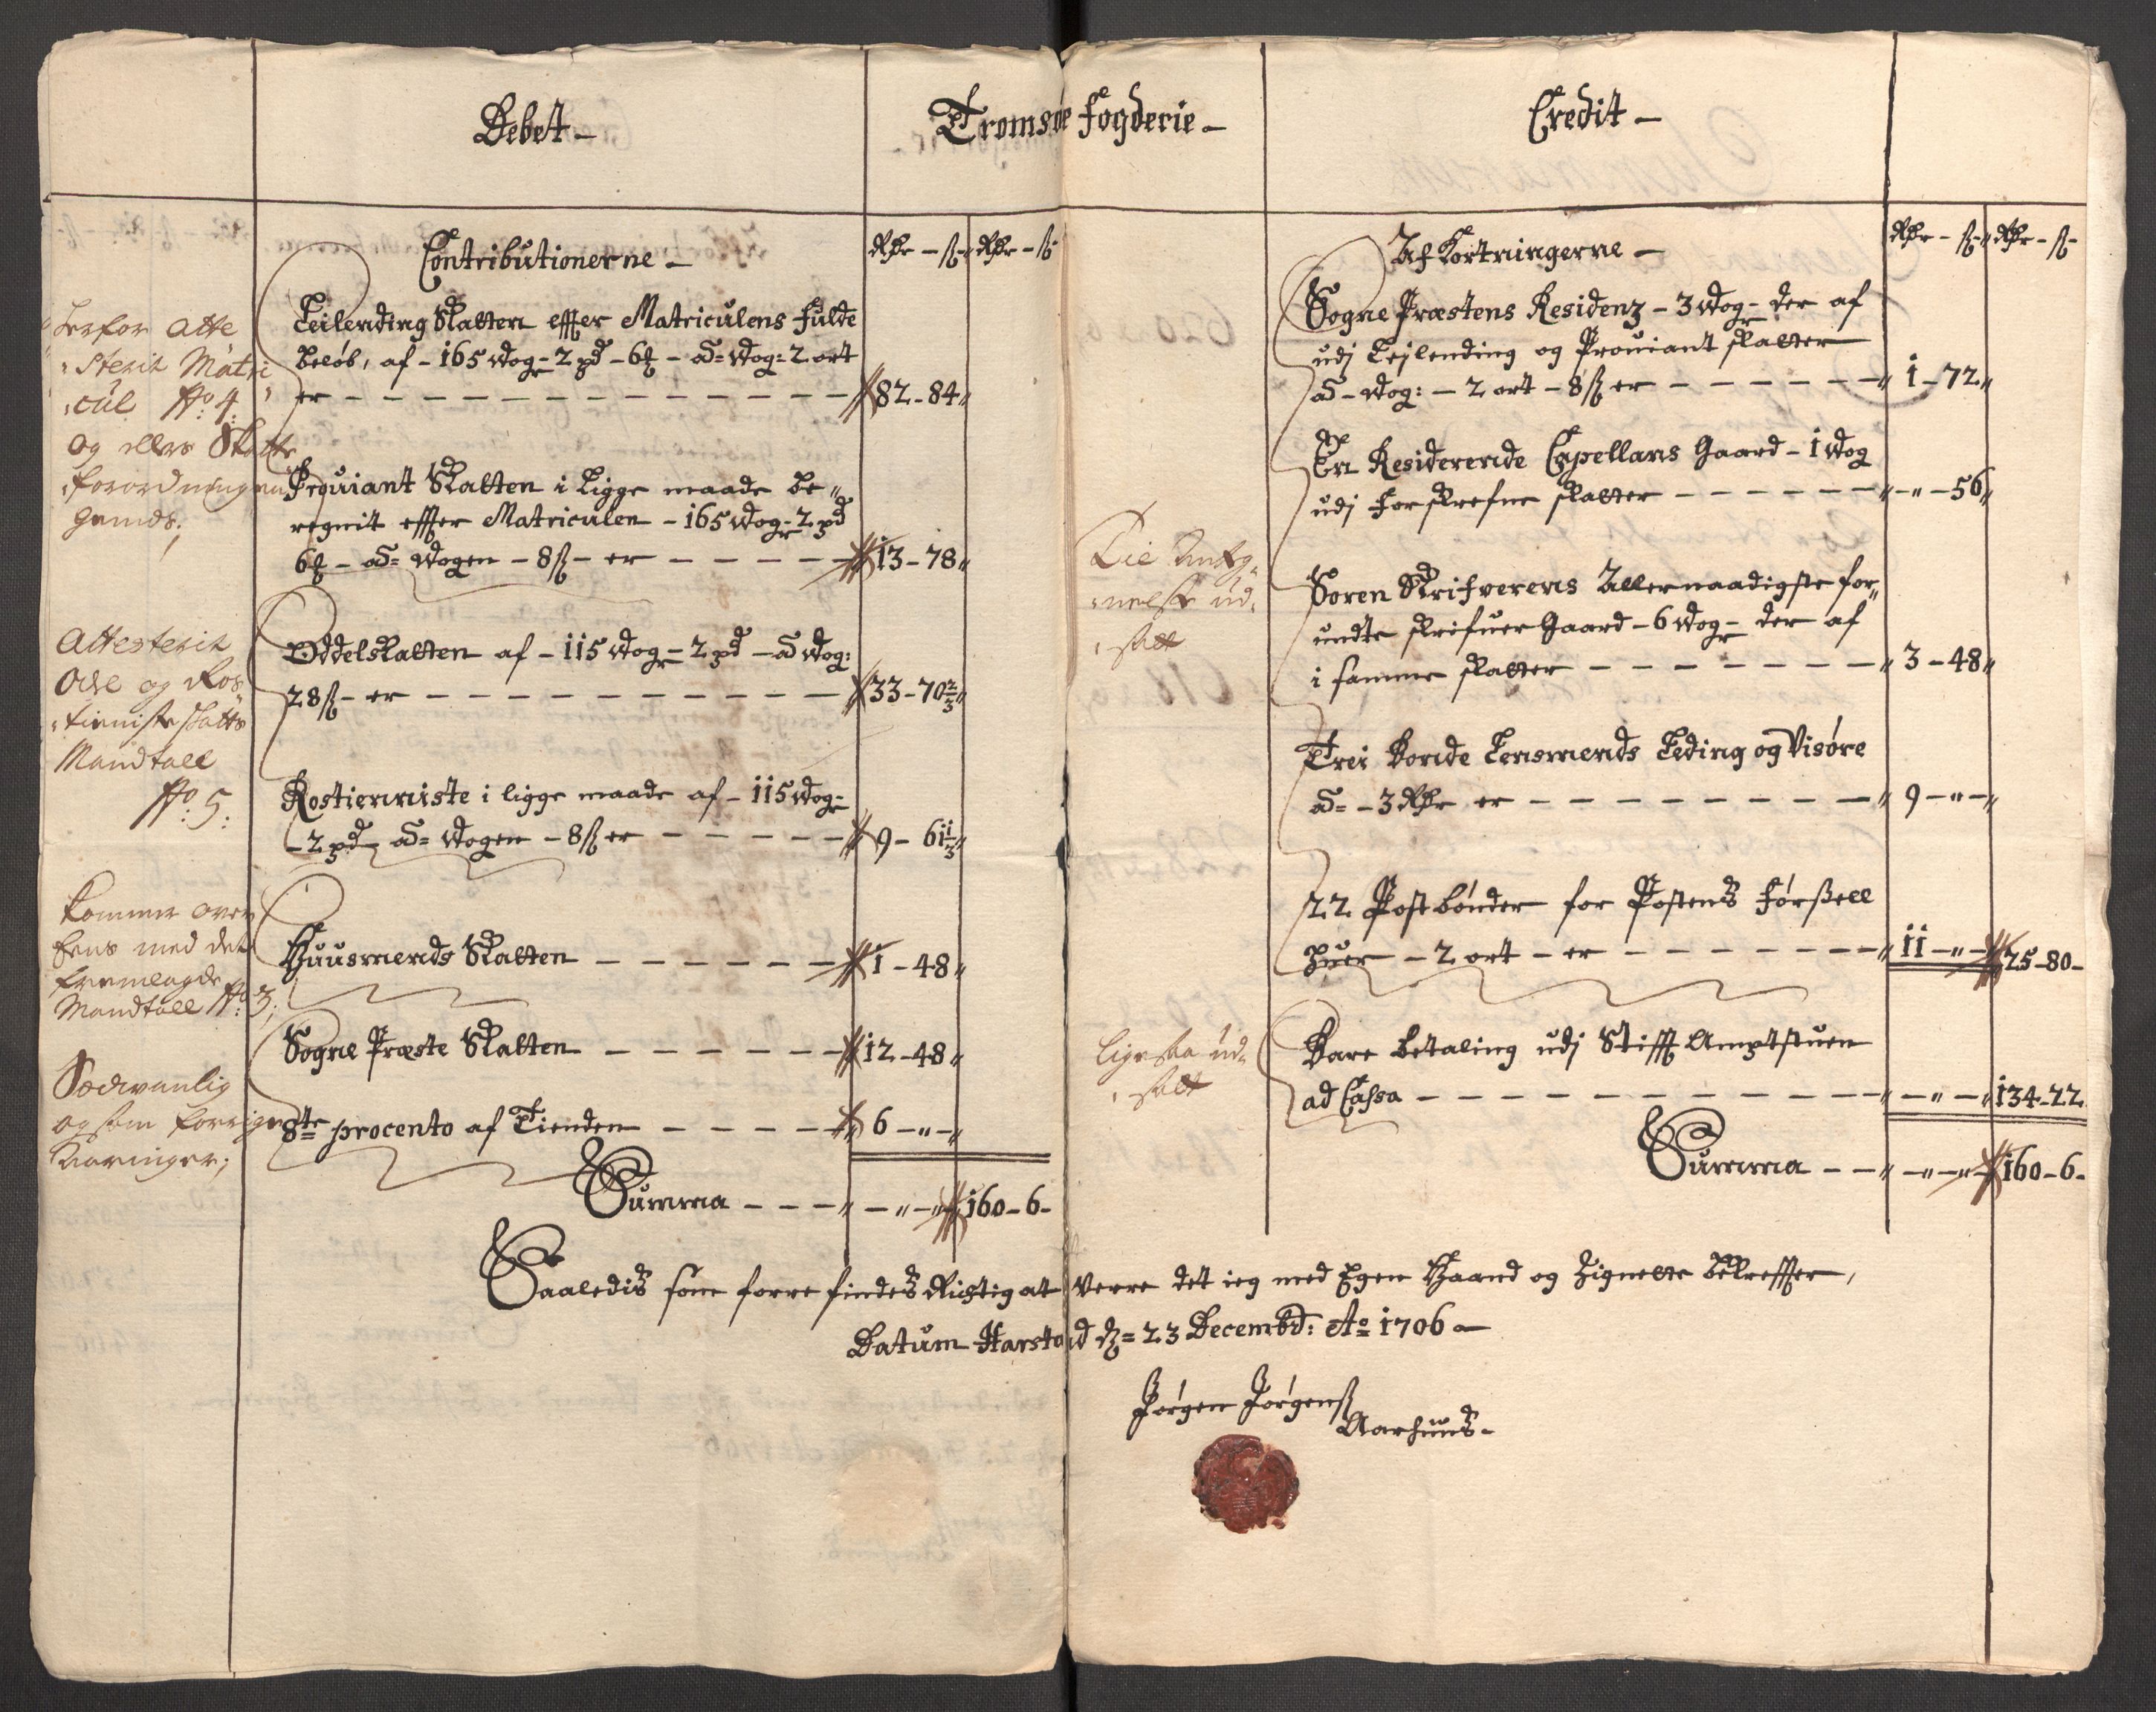 Debet –
Tromsøe fogderie –
Credit –
Contributionerne –
Rdr – ß – Rdr – ß
Leilending Skatten effter Matriculens fulde
beløb, af – 165 wog – 2 pd – 6 – ad wog: 2 ort
er – – – 82 – 84
Proviant Skatten i lige maade be„
regnit effter Matriculen – 165 wog – 2 pd
6 – ad wogen – 8 ß – er – – – 13 – 78
Oddelskatten af – 115 wog – 2 pd – ad wog:
28 ß – er – – – 33 – 70 2/3
Rostienniste i lige maade af – 115 wog –
– 2 pd – ad wogen – 8 ß er – – – 9 – 61 1/3
Huusmends Skatten – – – 1 – 48
Sogne Præste Skatten – – – 12 – 48
8te procento af Tienden – – – 6 – „ –
Summa – – – „ – 160 – 6 –
atte
„sterit Matri
„cul No 4:
og ellers Skatte
„forordningen
Attesterit
Ode og Ros„
„tieniste skatts
Mandtall
No 5:
Kommer over
Eens med det
fremlagde
Mandtall No 3;
Sædvanlig
og som forrige
Aaringer;
Rdr – ß – Rdr – ß –
Afkortningerne –
Sogne Præstens Residenz – 3 wog – der af
udj Lejlending og Proviant skatter
ad – wog: – 2 ort – 8 ß er – – – 1 – 72
En Residerende Capellans Gaard – 1 wog
udj forskrefne skatter – – – „ – 56
Soren Skrifverens Allernaadigste for„
undte skrifuer Gaard – 6 wog – der af
i samme skatter – – – 3 – 48
Trei bonde Lensmends Leding og Visøre
ad – 3 Rdr er – – – 9 – „ –
22 Post bønder for Postens førßell
huer – 2 ort – er – – – 11 – „ – 25 – 80 –
Bare betaling udj Stifft Amptstuen
ad Cassa – – – „ – 134 – 22
Summa – – „ – 160 – 6 –
ud„
„satt
ligesaa ud„
„satt
Saaledis som forre findes Rigtig at verre det ieg med Egen Haand og Zignette bekreffter,
Datum Harstad d = 23 Decembr: Ao 1706 –
Jørgen Jørgenß
Aarhuus –